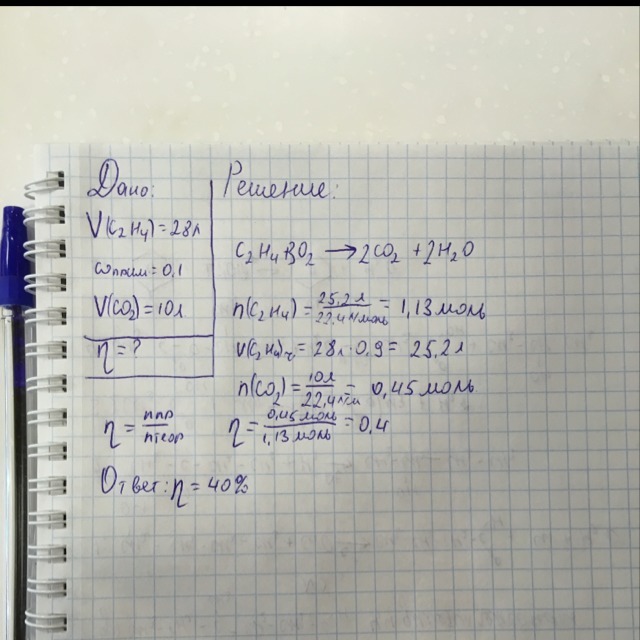 Дано:
V(C₂H₄) = 28л
ωприм = 0,1
V(CO₂) = 10л
η = ?
η = nпр/nтеор
Решение:
C₂H₄ + 3O₂ → 2CO₂ + 2H₂O
n(C₂H₄) = 25,2л/22,4л/моль = 1,13 моль
V(C₂H₄)ч = 28л · 0,9 = 25,2л
n(CO₂) = 10л/22,4л/м = 0,45 моль
η = 0,45 моль/1,13 моль = 0,4
Ответ: η = 40%